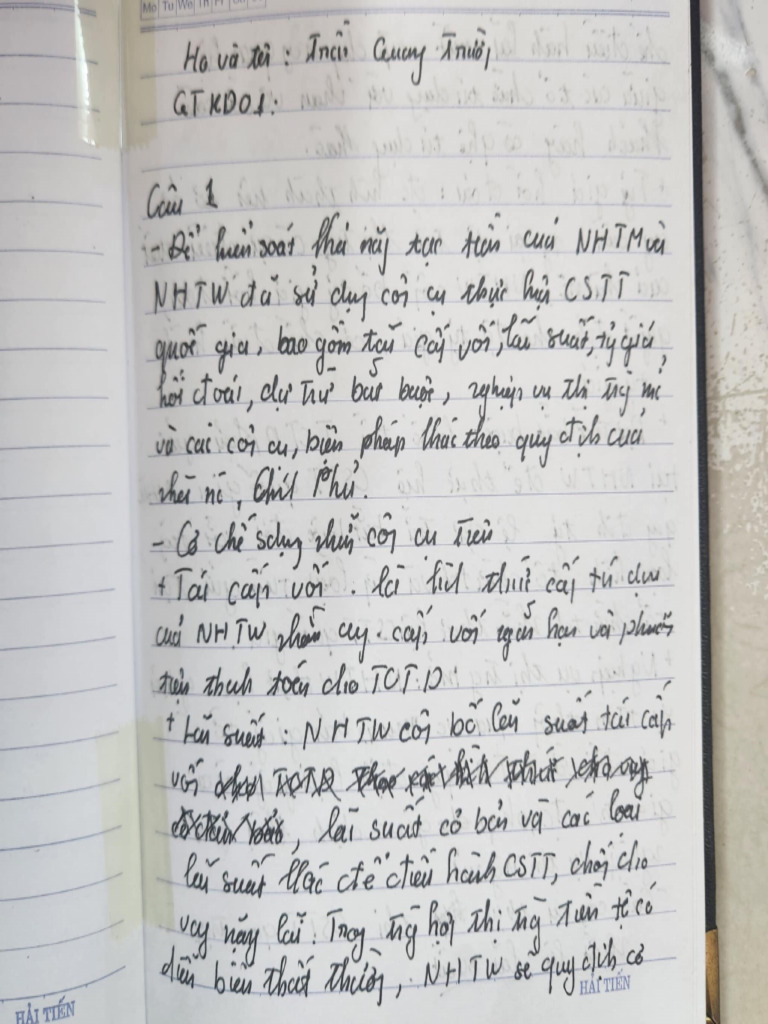 Mo Tu We Th Fr
Họ và tên : Trần Quang Trường
QTKD01:
Câu 1
- Để kiểm soát khả năng tạo tiền của NHTM và
NHTW đã sử dụng công cụ thực hiện CSTT
quốc gia, bao gồm tái cấp vốn, lãi suất, tỷ giá
hối đoái, dự trữ bắt buộc, nghiệp vụ thị trg mở
và các công cụ, biện pháp khác theo quy định của
nhà nc, Chính Phủ.
- Cơ chế sdụng những công cụ trên
+ Tái cấp vốn : là hình thức cấp tín dụng
của NHTW nhằm cung cấp vốn ngắn hạn và phương
tiện thanh toán cho TCTD.
+ Lãi suất : NHTW công bố lãi suất tái cấp
vốn, lãi suất cơ bản và các loại
lãi suất khác để điều hành CSTT, chống cho
vay nặng lãi. Trong trg hợp thị trg tiền tệ có
diễn biến bất thường, NHTW sẽ quy định cơ
HẢI TIẾN
HẢI TIẾN